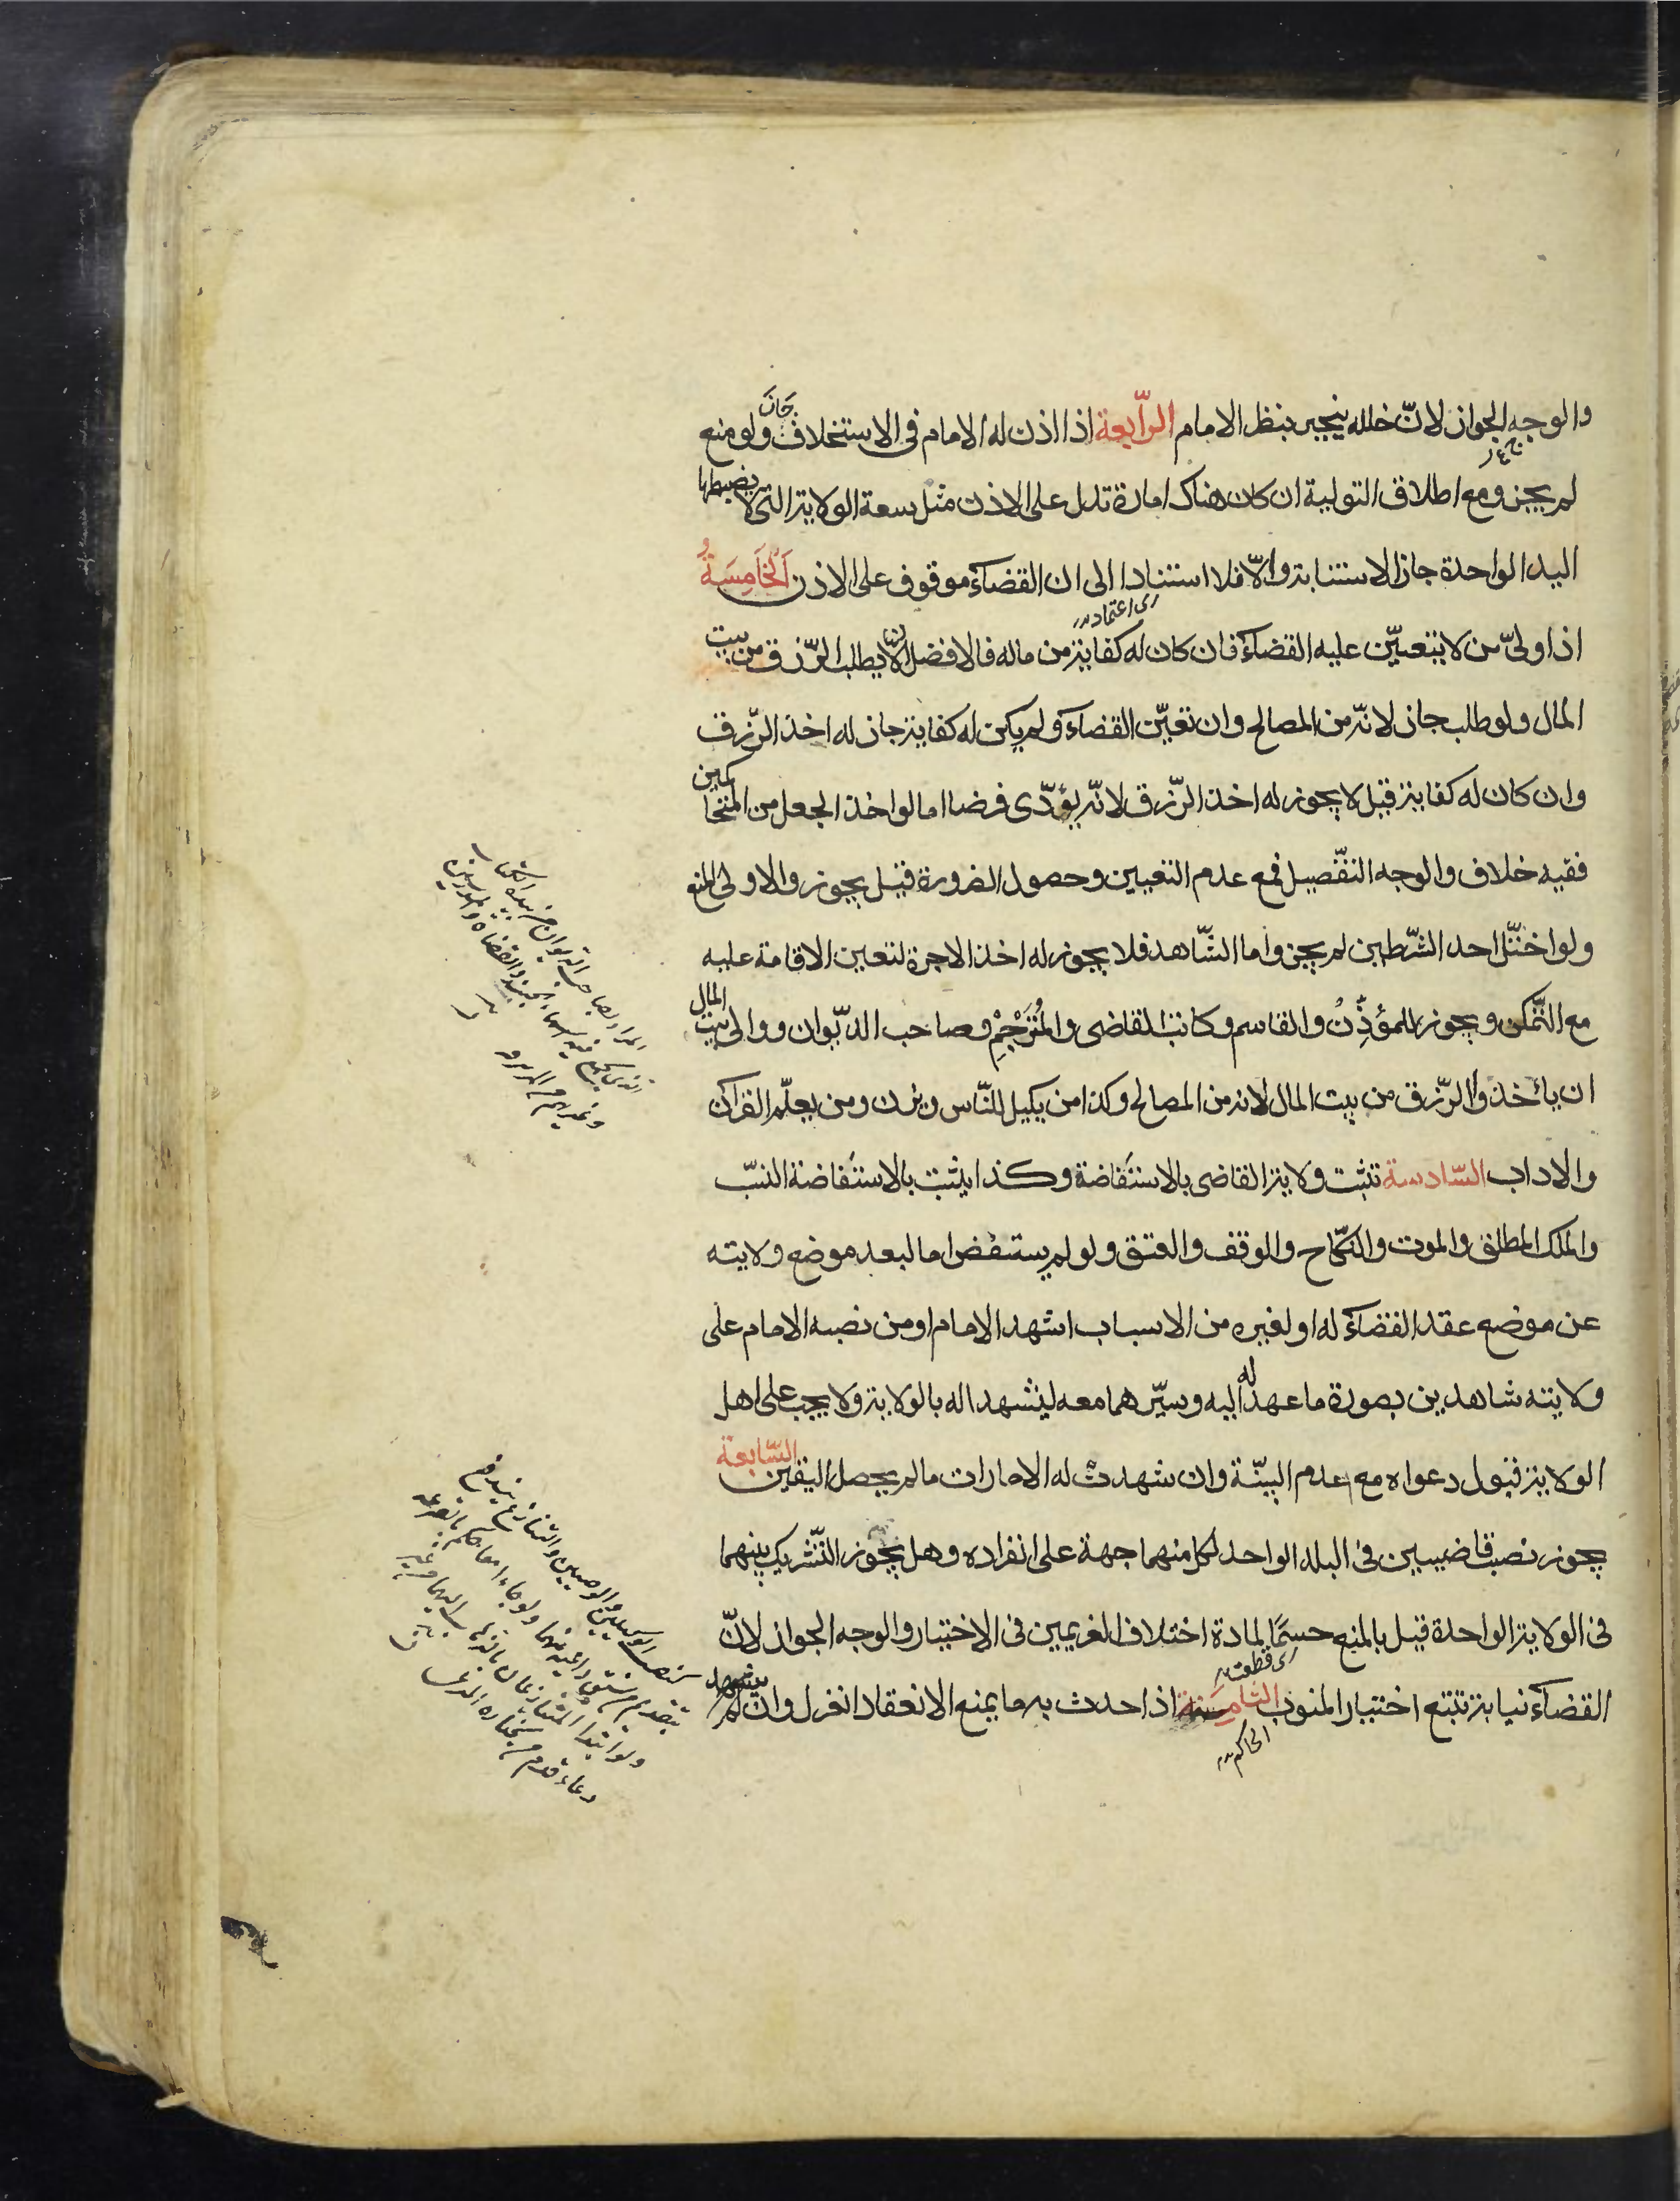 والوجه الجواز لانّ خلله ينجبر بنظر الامام الرّابعة اذا اذن له الامام فى الاستخلاف جَازَ ولو منع
لم يجز ومع اطلاق التولية ان كان هناك امارة تدل على الاذن مثل سعة الولاية التى لا يضبطها
اليد الواحدة جاز الاستنابة والّا فلا استنادا الى ان القضاء موقوف على الاذن اَلْخَامِسَةُ
اى اعتمادا
اذا ولىّ من لا يتعيّن عليه القضاء فان كان له كفاية من ماله فالافضل ان لا يطلب الرّزق من بيت
المال ولو طلب جاز لانّه من المصالح وان تعيّن القضاء ولم يكن له كفاية جاز له اخذ الرّزق
وان كان له كفاية قيل لا يجوز له اخذ الرّزق لانّه يؤدّى فرضا اما لو اخذ الجعل من المتحاكمين
ففيه خلاف والوجه التفّصيل فمع عدم التعيين وحصول الضرورة قيل يجوز والاولى المنع
ولو اختلّ احد الشّرطين لم يجز واما الشّاهد فلا يجوز له اخذ الاجرة لتعين الاقامة عليه
مع التّمكن ويجوز للمؤذِّن والقاسم وكاتب القاضى والمُتَرْجِمِ وصاحب الدّيوان ووالى بيت المال
ان يأخذوا الرّزق من بيت المال لانه من المصالح وكذا من يكيل للنّاس ويزن ومن يعلّم القرآن
والاداب السّادسة تثبت ولاية القاضى بالاستفاضة وكذا يثبت بالاستفاضة النسّب
والملك المطلق والموت والنكّاح والوقف والعتق ولو لم يستفض اما لبعد موضع ولايته
عن موضع عقد القضاء له او لغيره من الاسباب اشهد الامام او من نصبه الامام على
ولايته شاهدين بصورة ما عهد له اليه وسيّرهما معه ليشهدا له بالولاية ولا يجب على اهل
الولاية قبول دعواه مع عدم البيّنة وان شهدت له الامارات ما لم يحصل اليقين السّابعة
يجوز نصب قاضيين فى البلد الواحد لكل منهما جهة على انفراده وهل يجوز التّشريك بينهما
فى الولاية الواحدة قيل بالمنع حسمًا لمادة اختلاف الغريمين فى الاختيار والوجه الجواز لانّ
اى قطعت
القضاء نيابة تتبع اختيار المنوب الثامِنَة اذا حدث به ما يمنع الانعقاد انعزل وان لم يشهد
الحاكم
المراد بصاحب الديوان
والقضاة
كنصب الوكيلين والوصيين